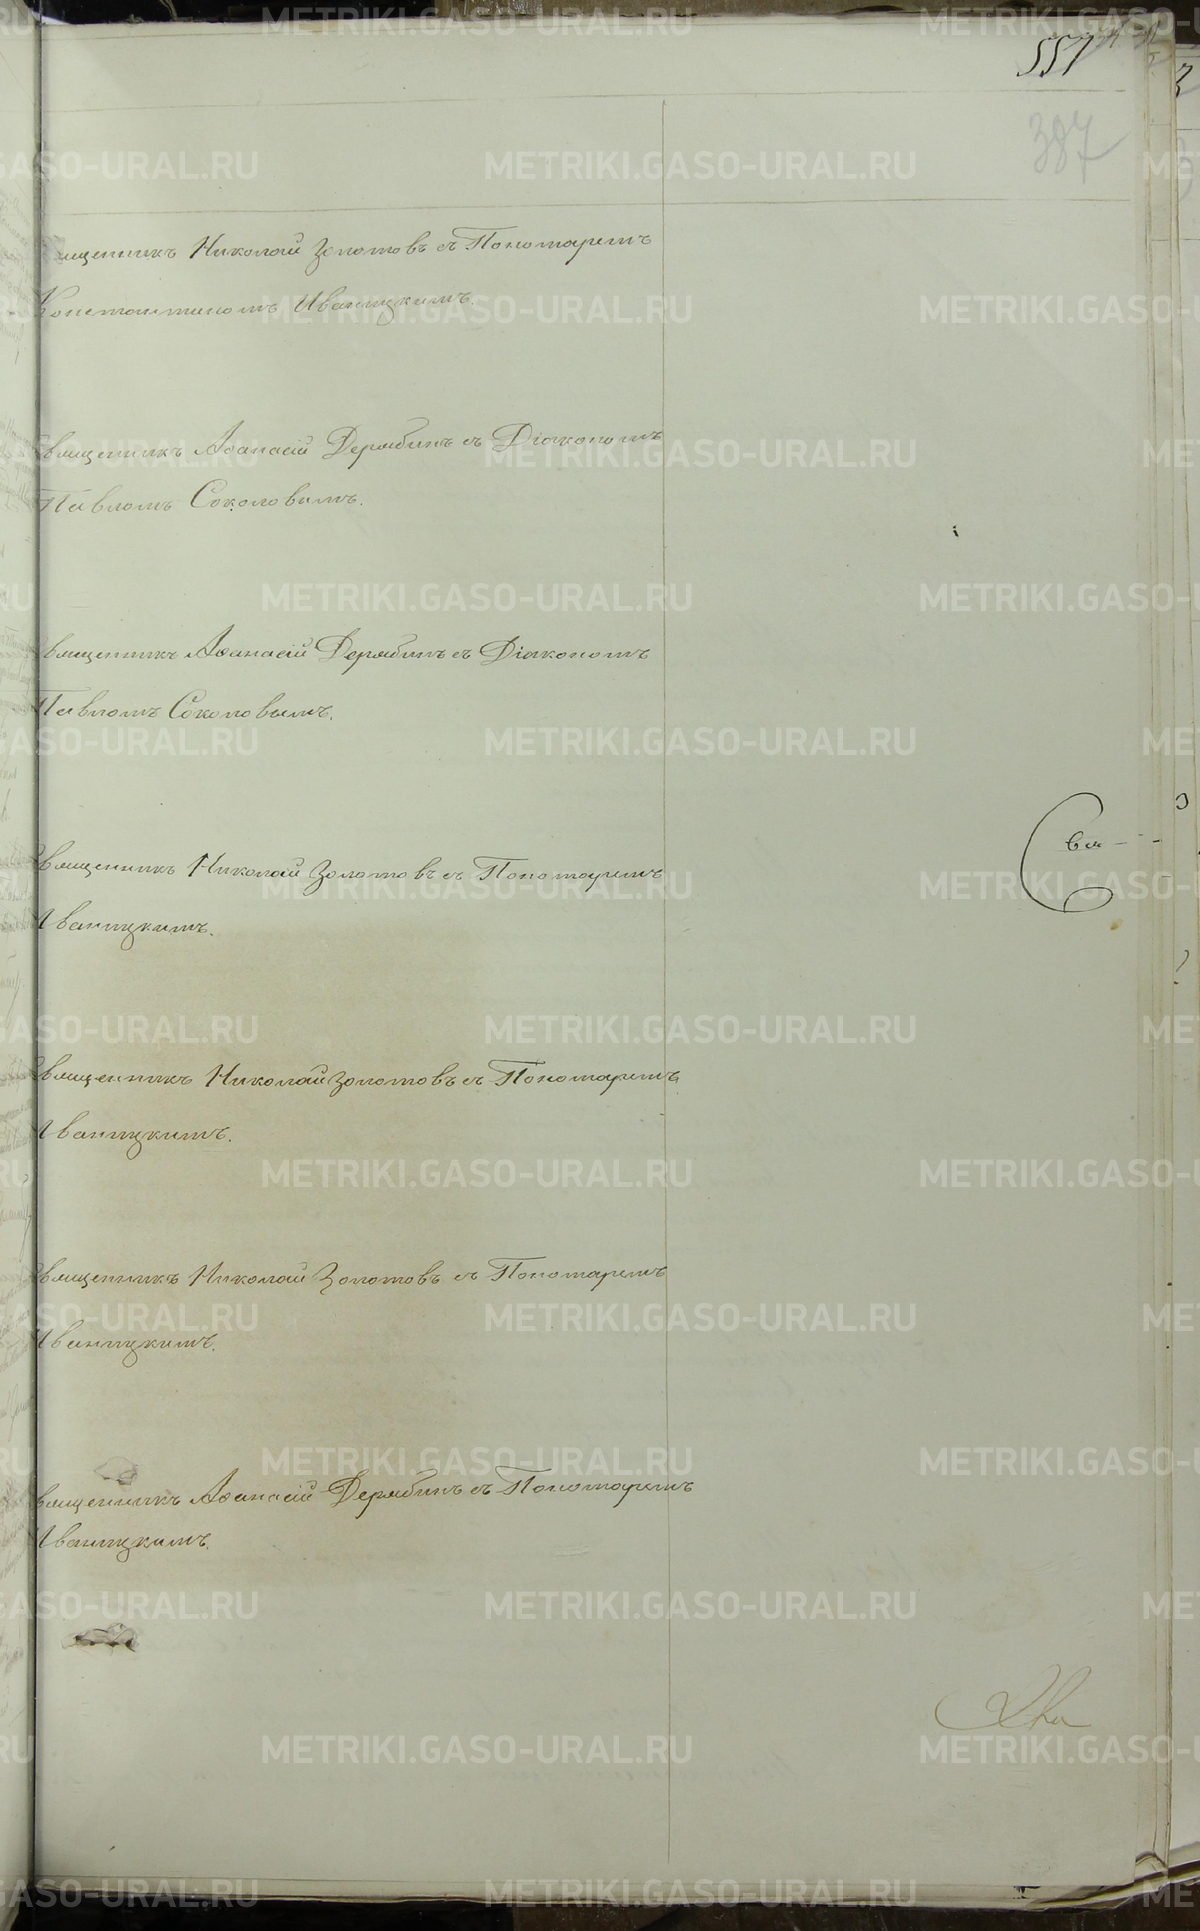 557
387
Священникъ Николай Золотовъ съ Пономаремъ
Константиномъ Иваницкимъ.
Священникъ Афанасій Дерябинъ съ Діакономъ
Павломъ Соколовымъ.
Священникъ Афанасій Дерябинъ съ Діакономъ
Павломъ Соколовымъ.
Священникъ Николай Золотовъ съ Пономаремъ
Иваницкимъ.
Свя-
Священникъ Николай Золотовъ съ Пономаремъ
Иваницкимъ.
Священникъ Николай Золотовъ съ Пономаремъ
Иваницкимъ.
Священникъ Афанасій Дерябинъ съ Пономаремъ
Иваницкимъ.
METRIKI.GASO-URAL.RU